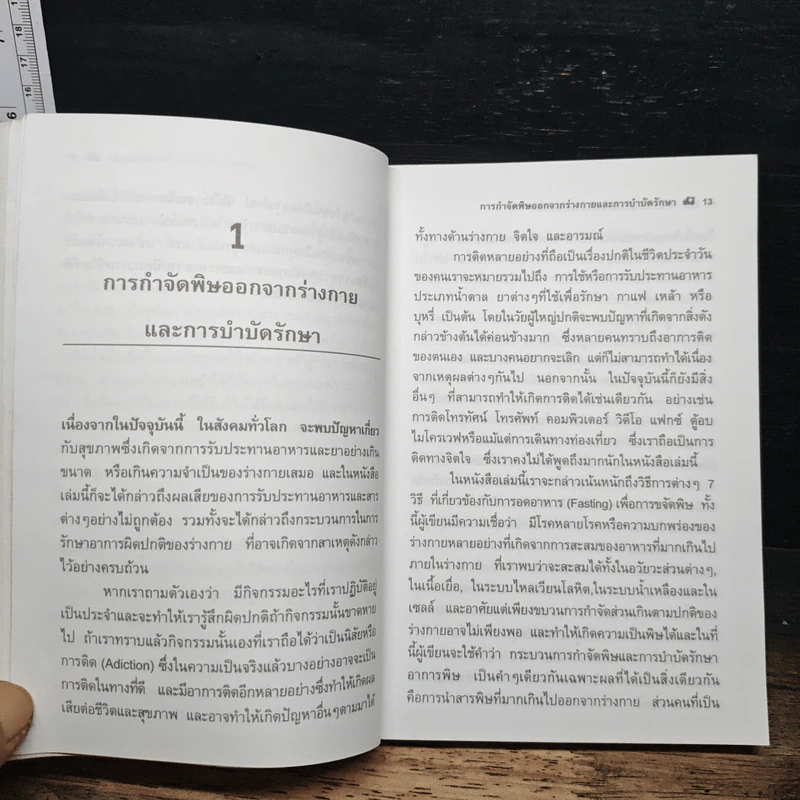 1
การกำจัดพิษออกจากร่างกาย
และการบำบัดรักษา
เนื่องจากในปัจจุบันนี้ ในสังคมทั่วโลก จะพบปัญหาเกี่ยว
กับสุขภาพซึ่งเกิดจากการรับประทานอาหารและยาอย่างเกิน
ขนาด หรือเกินความจำเป็นของร่างกายเสมอ และในหนังสือ
เล่มนี้ก็จะได้กล่าวถึงผลเสียของการรับประทานอาหารและสาร
ต่างๆอย่างไม่ถูกต้อง รวมทั้งจะได้กล่าวถึงกระบวนการในการ
รักษาอาการผิดปกติของร่างกาย ที่อาจเกิดจากสาเหตุดังกล่าว
ไว้อย่างครบถ้วน
หากเราถามตัวเองว่า มีกิจกรรมอะไรที่เราปฏิบัติอยู่
เป็นประจำและจะทำให้เรารู้สึกผิดปกติถ้ากิจกรรมนั้นขาดหาย
ไป ถ้าเราทราบแล้วกิจกรรมนั้นเองที่เราถือได้ว่าเป็นนิสัยหรือ
การติด (Adiction) ซึ่งในความเป็นจริงแล้วบางอย่างอาจจะเป็น
การติดในทางที่ดี และมีอาการติดอีกหลายอย่างซึ่งทำให้เกิดผล
เสียต่อชีวิตและสุขภาพ และอาจทำให้เกิดปัญหาอื่นๆตามมาได้
การกำจัดพิษออกจากร่างกายและการบำบัดรักษา 13
ทั้งทางด้านร่างกาย จิตใจ และอารมณ์
การติดหลายอย่างที่ถือเป็นเรื่องปกติในชีวิตประจำวัน
ของคนเราจะหมายรวมไปถึง การใช้หรือการรับประทานอาหาร
ประเภทน้ำตาล ยาต่างๆที่ใช้เพื่อรักษา กาแฟ เหล้า หรือ
บุหรี่ เป็นต้น โดยในวัยผู้ใหญ่ปกติจะพบปัญหาที่เกิดจากสิ่งดัง
กล่าวข้างต้นได้ค่อนข้างมาก ซึ่งหลายคนทราบถึงอาการติด
ของตนเอง และบางคนอยากจะเลิก แต่ก็ไม่สามารถทำได้เนื่อง
จากเหตุผลต่างๆกันไป นอกจากนั้น ในปัจจุบันนี้ก็ยังมีสิ่ง
อื่นๆ ที่สามารถทำให้เกิดการติดได้เช่นเดียวกัน อย่างเช่น
การติดโทรทัศน์ โทรศัพท์ คอมพิวเตอร์ วิดีโอ แฟกซ์ ตู้อบ
ไมโครเวฟหรือแม้แต่การเดินทางท่องเที่ยว ซึ่งเราถือเป็นการ
ติดทางจิตใจ ซึ่งเราคงไม่ได้พูดถึงมากนักในหนังสือเล่มนี้
ในหนังสือเล่มนี้เราจะกล่าวเน้นหนักถึงวิธีการต่างๆ 7
วิธี ที่เกี่ยวข้องกับการอดอาหาร (Fasting) เพื่อการขจัดพิษ ทั้ง
นี้ผู้เขียนมีความเชื่อว่า มีโรคหลายโรคหรือความบกพร่องของ
ร่างกายหลายอย่างที่เกิดจากการสะสมของอาหารที่มากเกินไป
ภายในร่างกาย ที่เราพบว่าจะสะสมได้ทั้งในอวัยวะส่วนต่างๆ,
ในเนื้อเยื่อ, ในระบบไหลเวียนโลหิต,ในระบบน้ำเหลืองและใน
เซลล์ และอาศัยแต่เพียงขบวนการกำจัดส่วนเกินตามปกติของ
ร่างกายอาจไม่เพียงพอ และทำให้เกิดความเป็นพิษได้และในที่
นี้ผู้เขียนจะใช้คำว่า กระบวนการกำจัดพิษและการบำบัดรักษา
อาการพิษ เป็นคำๆเดียวกันเฉพาะผลที่ได้เป็นสิ่งเดียวกัน
คือการนำสารพิษที่มากเกินไปออกจากร่างกาย ส่วนคนที่เป็น
16
17
18